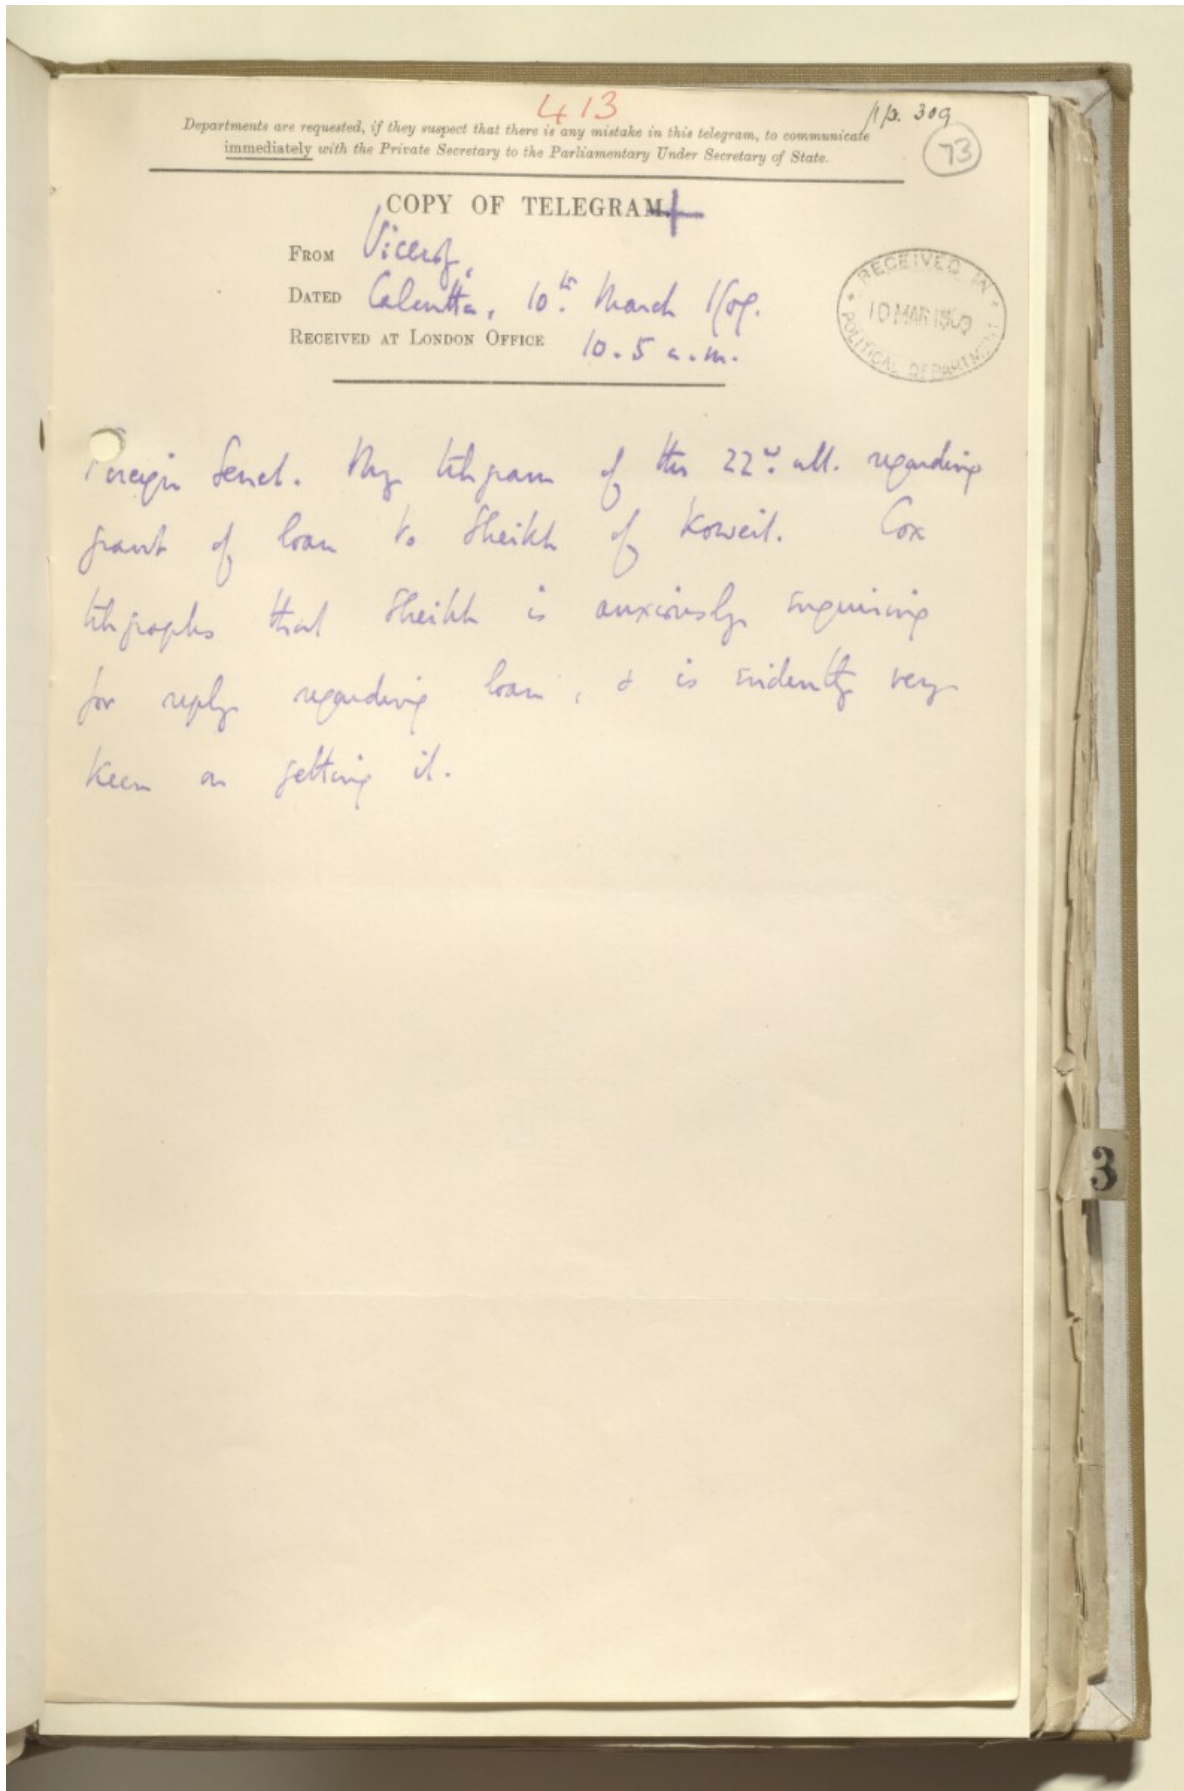 413
1/p. 309
Departments are requested, if they suspect that there is any mistake in this telegram, to communicate
immediately with the Private Secretary to the Parliamentary Under Secretary of State.
73
COPY OF TELEGRAM.
FROM Viceroy,
DATED Calcutta, 10th March 1909.
RECEIVED AT LONDON OFFICE 10.5 a.m.
RECEIVED IN
10 MAR 1909
POLITICAL DEPARTMENT
Foreign Secret. My telegram of the 22nd ult. regarding
grant of loan to Sheikh of Koweit. Cox
telegraphs that Sheikh is anxiously enquiring
for reply regarding loan, & is evidently very
keen on getting it.
3